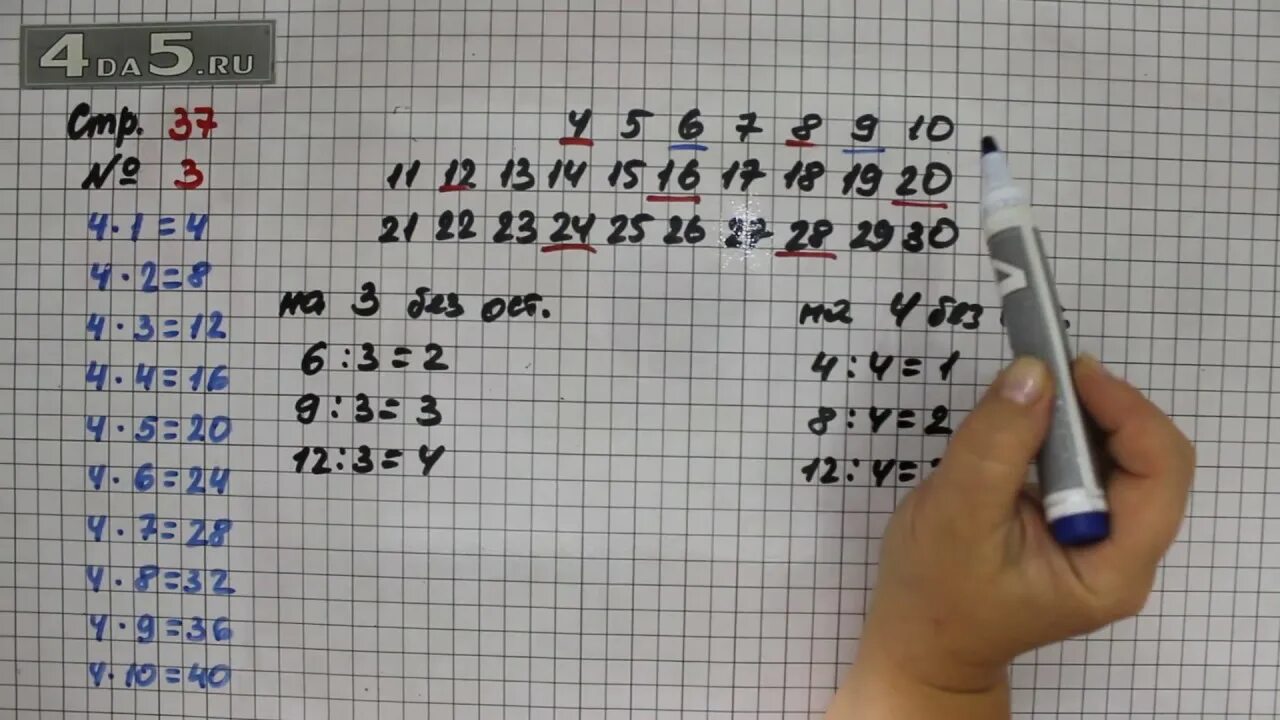 4DA5.RU
Стр. 37
№ 3
4·1=4
4·2=8
4·3=12
4·4=16
4·5=20
4·6=24
4·7=28
4·8=32
4·9=36
4·10=40
4 5 6 7 8 9 10
11 12 13 14 15 16 17 18 19 20
21 22 23 24 25 26 27 28 29 30
на 3 без ост.
6:3=2
9:3=3
12:3=4
на 4 без
4:4=1
8:4=2
12:4=